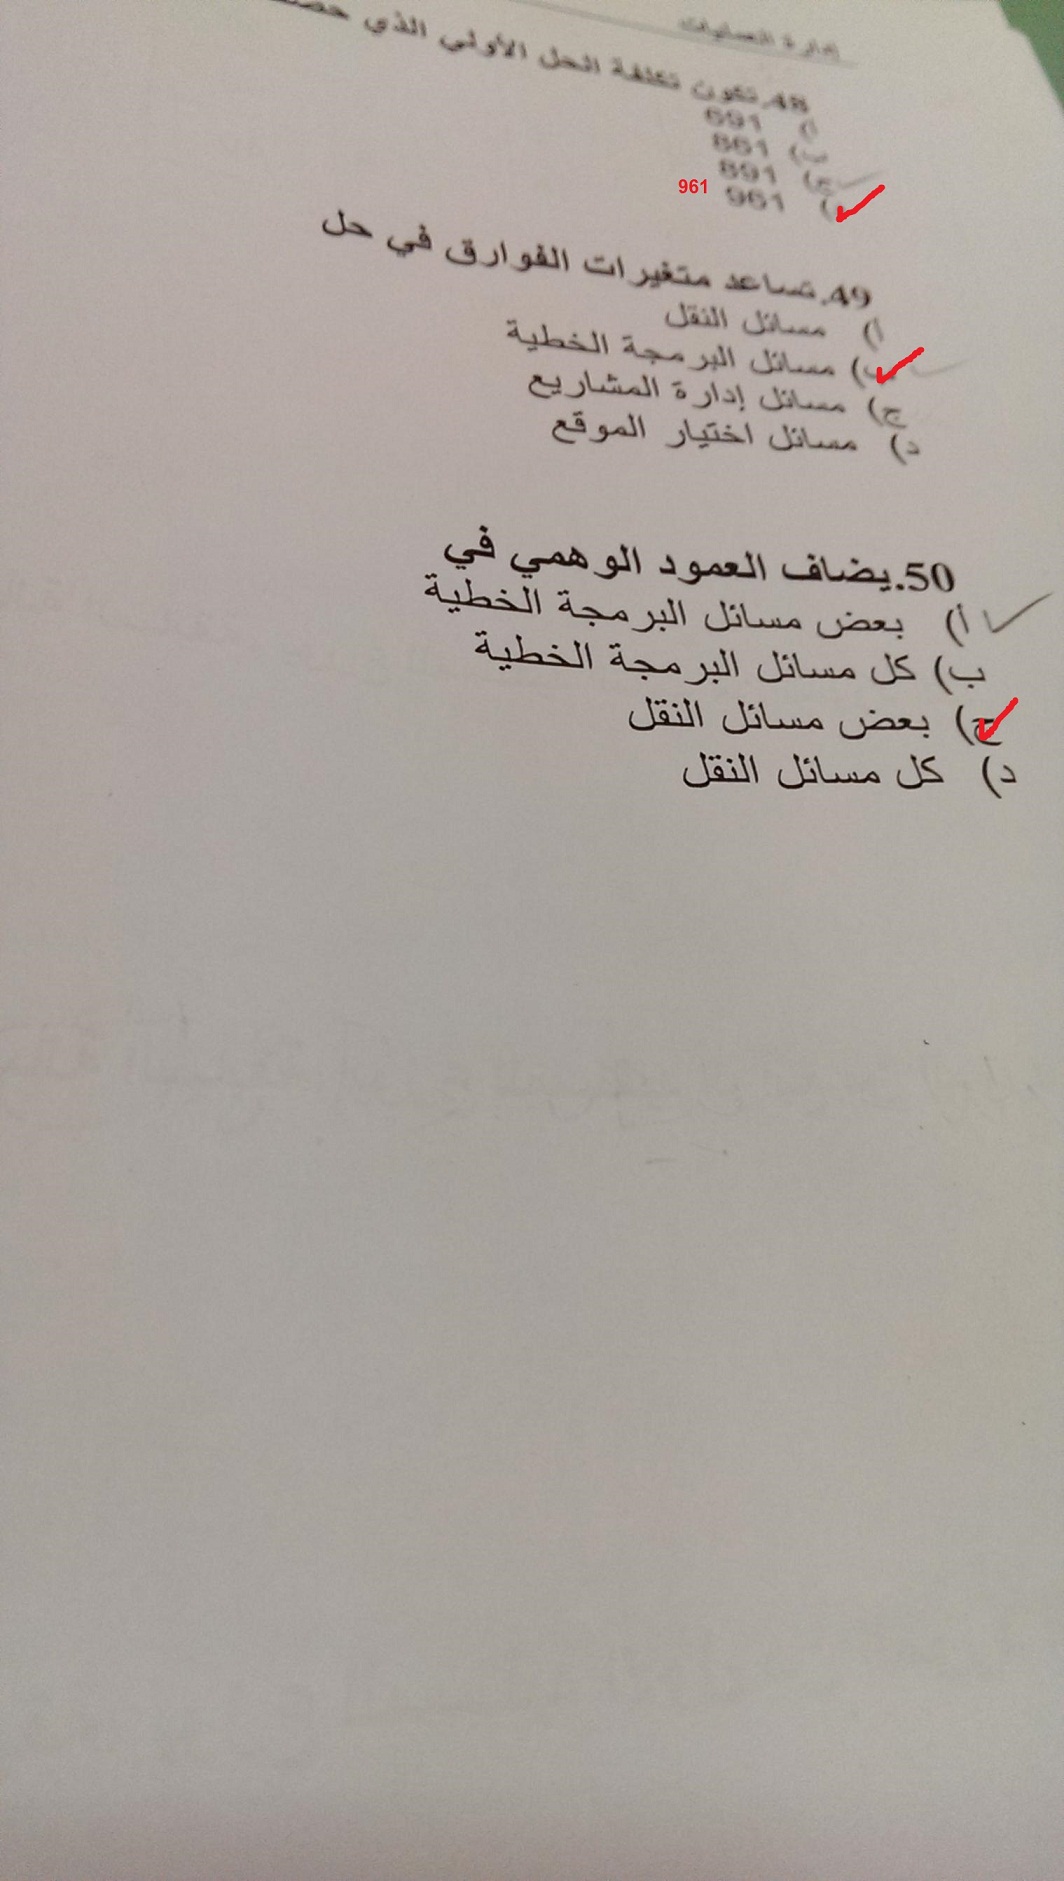 إدارة العمليات
48.تكون تكلفة الحل الأولي الذي
أ) 691
ب) 861
ج) 891
د) 961
961
49.تساعد متغيرات الفوارق في حل
أ) مسائل النقل
ب) مسائل البرمجة الخطية
ج) مسائل إدارة المشاريع
د) مسائل اختيار الموقع
50.يضاف العمود الوهمي في
أ) بعض مسائل البرمجة الخطية
ب) كل مسائل البرمجة الخطية
ج) بعض مسائل النقل
د) كل مسائل النقل